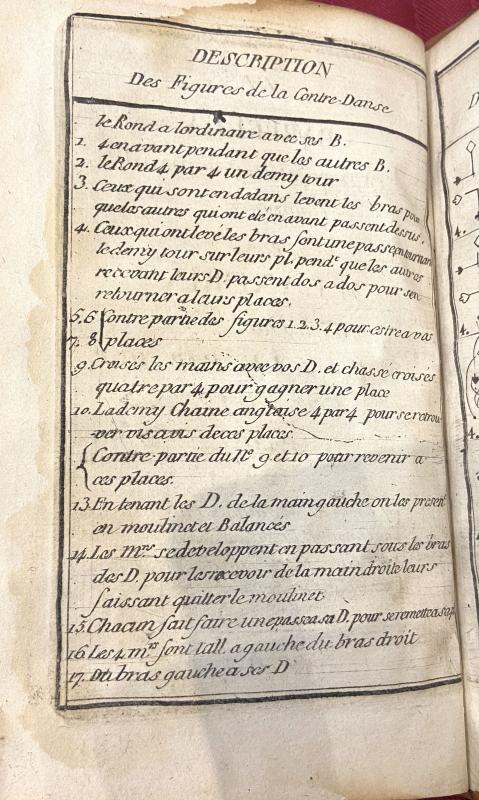 DESCRIPTION
Des Figures de la Contre-Danse
le Rond a lordinaire avec ses B.
1. 4 en avant pendant que les autres B.
2. le Rond 4 par 4 un demy tour
3. Ceux qui sont en dedans levent les bras pour
que les autres qui ont elé en avant passent dessus.
4. Ceux qui ont levé les bras font une passe en tournant
le demy tour sur leurs pl. pend.t que les autres
recevant leurs D. passent dos a dos pour sen
retourner a leurs places.
5. 6 Contre partie des figures 1. 2. 3. 4 pour estre a vos
7. 8 places
9. Croisés les mains avec vos D. et chassé croisés
quatre par 4 pour gagner une place
10. La demy Chaine anglaise 4 par 4 pour se retrou-
ver vis a vis de ces places.
Contre-partie du N.o 9 et 10 pour revenir a
ces places.
13. En tenant les D. de la main gauche on les present
en moulinet et Balancés
14. Les m.rs se developpent en passant sous les bras
des D. pour les recevoir de la main droite leurs
faissant quitter le moulinet
15. Chacun fait faire une passe a sa D. pour se remettre a sa p
16. Les 4 m.rs font lall. a gauche du bras droit
17. Du bras gauche a ses D